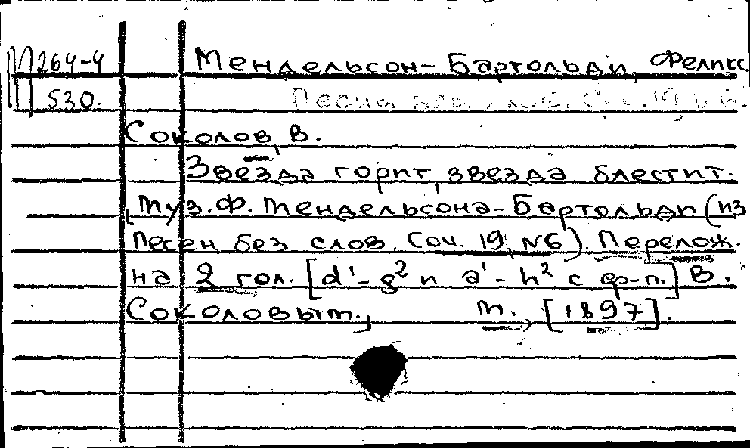 М 264-4 Мендельсон-Бартольди, Феликс
530. Песни без слов. Соч. 19 №6.
Соколов, В.
Звезда горит, звезда блестит.
Муз. Ф. Мендельсона-Бартольди (из
Песен без слов, Соч. 19, №6). Перелож.
на 2 гол. [d'-g² и a'-h² с ф-п.] В.
Соколовым.,  М., [1897].